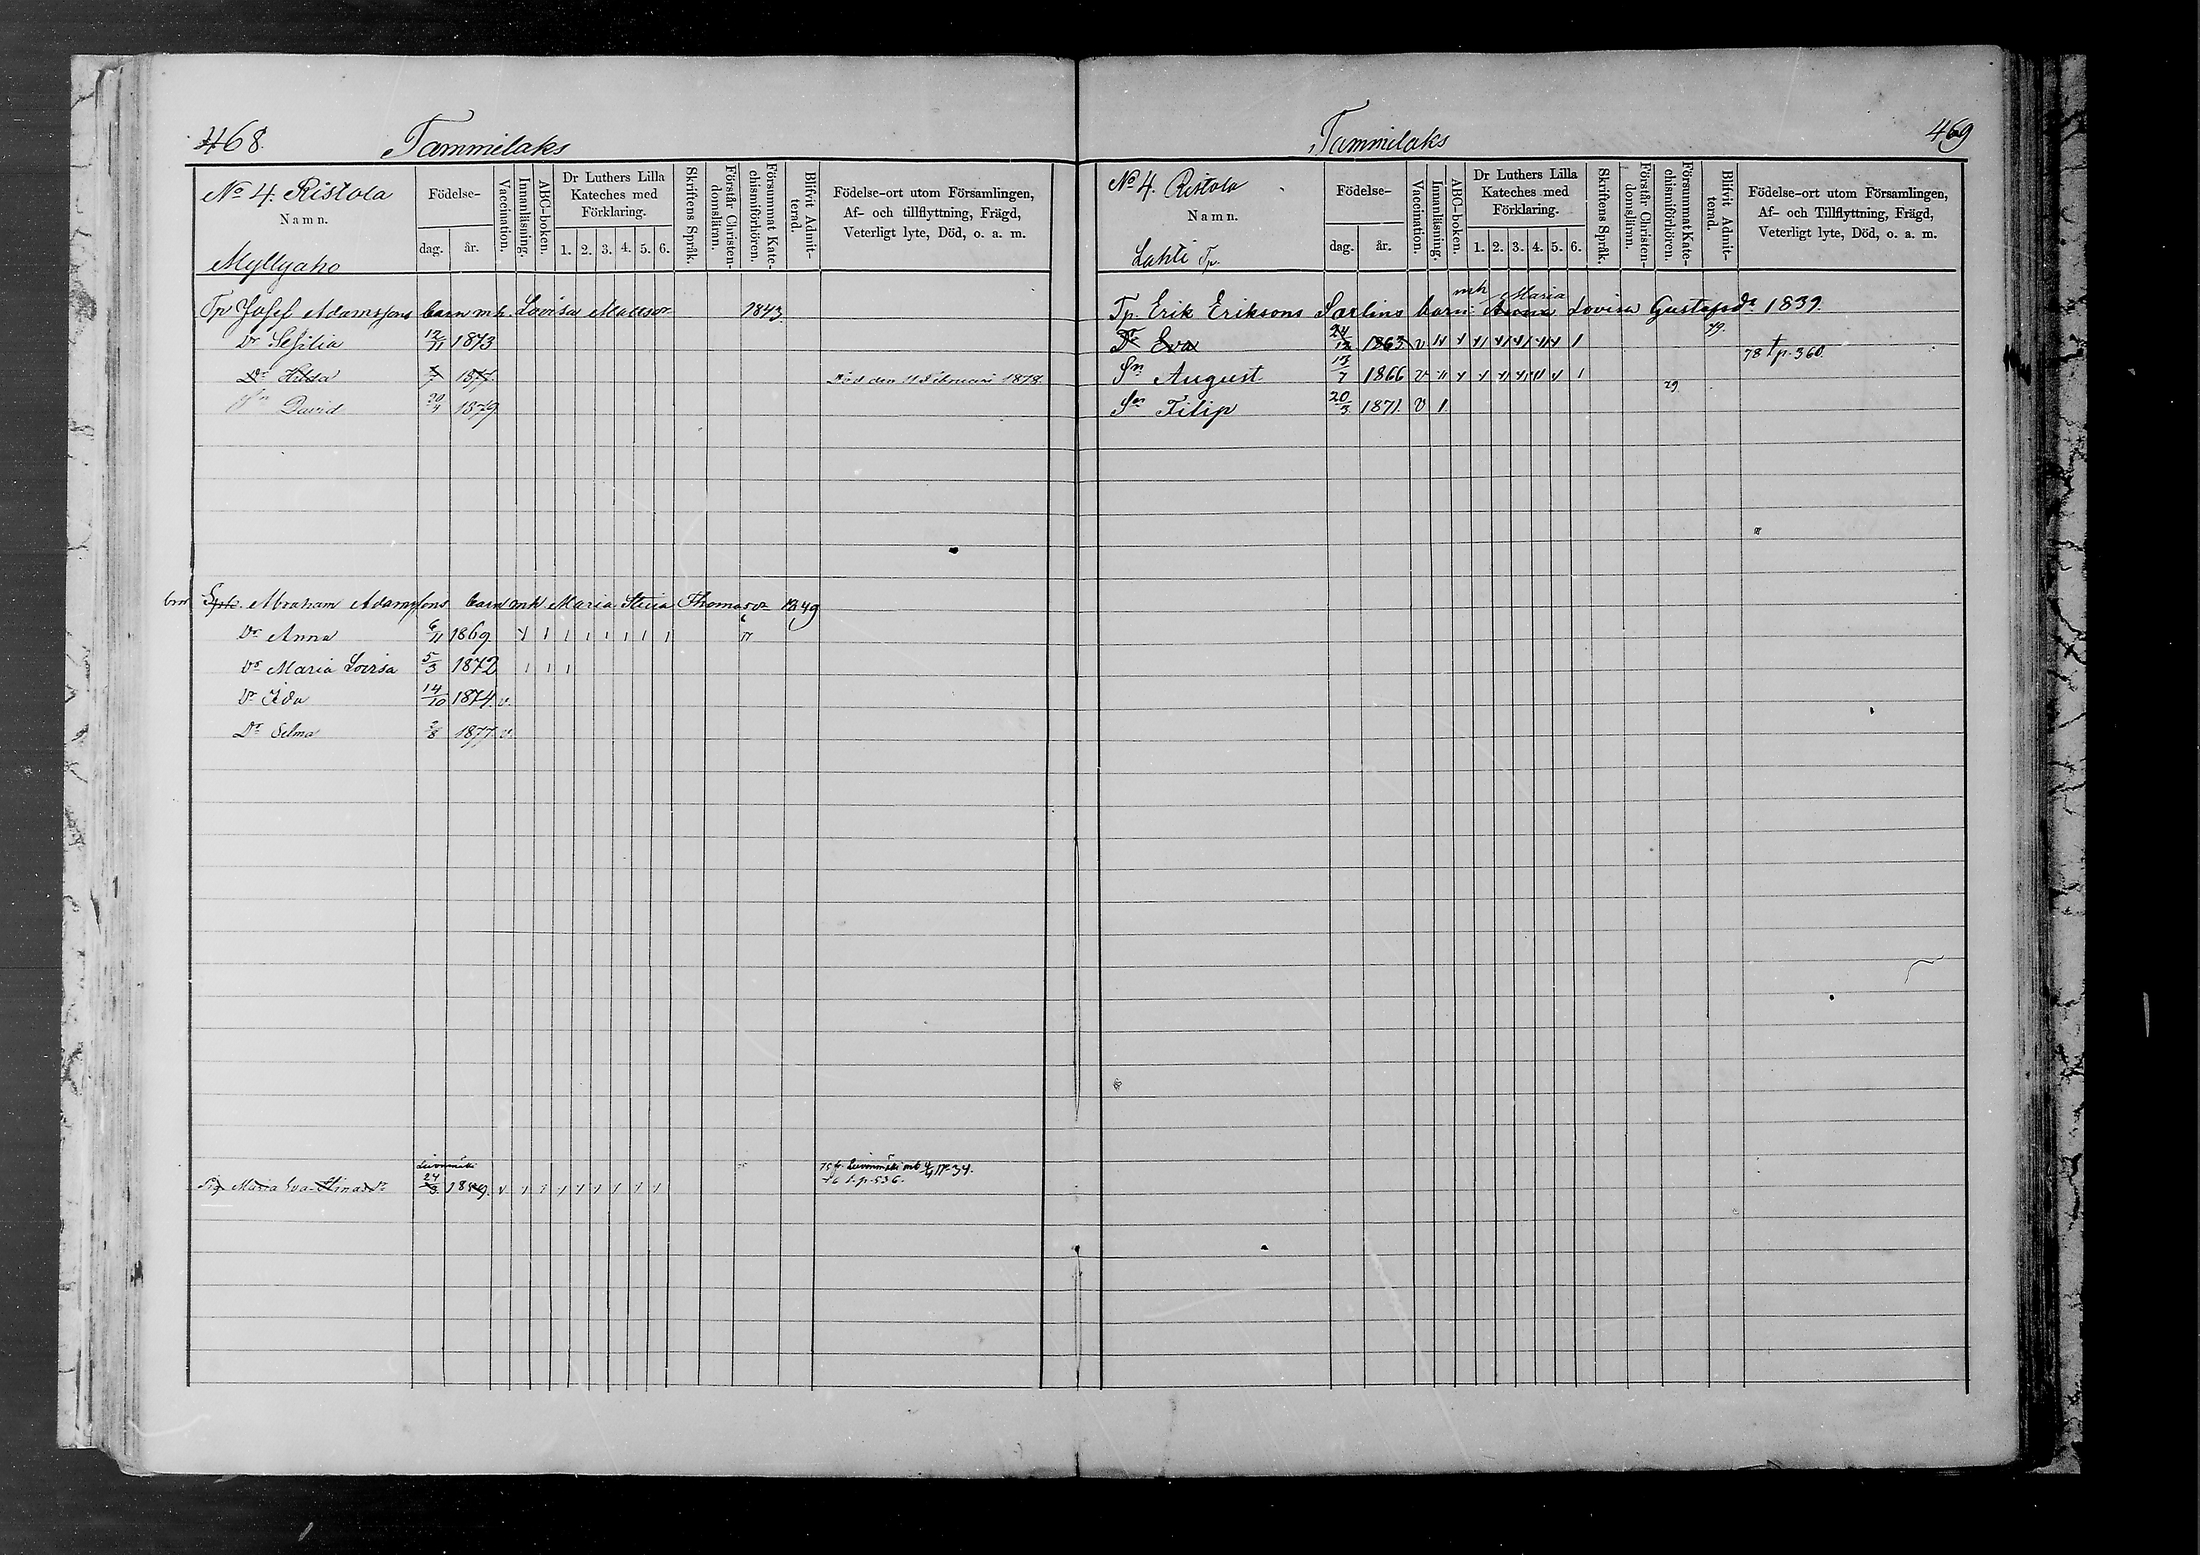 468.
Tammilaks
No 4. Ristola
Namn.
Myllyaho
Födelse-
dag.
år.
Vaccination.
Innanläsning.
ABC-boken.
Dr Luthers Lilla
Kateches med
Förklaring.
1. 2. 3. 4. 5. 6.
Skriftens Språk.
Förstår Christen-
domsläran.
Försummat Kate-
chismiförhören.
Blifvit Admit-
terad.
Födelse-ort utom Församlingen,
Af- och tillflyttning, Frägd,
Veterligt lyte, Död, o. a. m.
Tp Josef Adamssons barn m h. Lovisa Matsdr 1843.
Dr Sesilia 12/11 1873
Dr Hilda 1877. Död den 11 Februari 1878.
Sn David 20/4 1879
Abraham Adamssons barn mh Maria Stina Thomasdr 1849
Dr Anna 6/11 1869. 1 1 1 1 1 1 1
Dr Maria Lovisa 5/3 1872 1 1 1
Dr Ida 14/10 1874. v.
Dr Selma 2/8 1877. v.
Leivonmäki
Maria Eva 24/3 1859.
75 fr. Leivonmäki No 34.
p. 536.
Tammilaks
469
No 4. Ristola
Namn.
Lahti Tp.
Födelse-
dag.
år.
Vaccination.
Innanläsning.
ABC-boken.
Dr Luthers Lilla
Kateches med
Förklaring.
1. 2. 3. 4. 5. 6.
Skriftens Språk.
Förstår Christen-
domsläran.
Försummat Kate-
chismiförhören.
Blifvit Admit-
terad.
Födelse-ort utom Församlingen,
Af- och Tillflyttning, Frägd,
Veterligt lyte, Död, o. a. m.
mh Maria
Tp. Erik Eriksons Saxlins barn Anna Lovisa Gustafsdr 1839.
Dr Eva 24/12 1863 v 79. 78 p. 360.
Sn August 13/7 1866 v 79.
Sn Filip 20/3 1871. v 1.